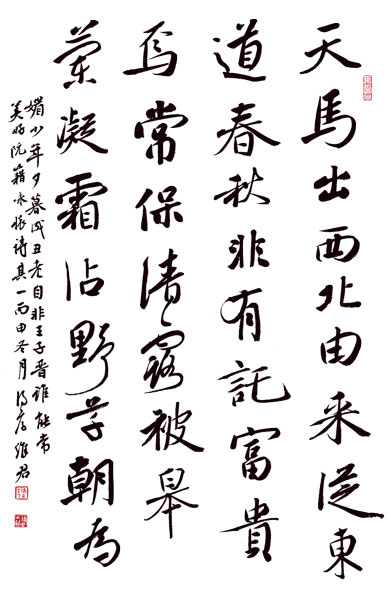 天馬出西北由来從東
道春秋非有託富貴
焉常保清露被皋
蘭凝霜沾野草朝為
媚少年夕暮成丑老自非王子晉誰能常
美好阮籍咏懷詩其一丙申冬月維君